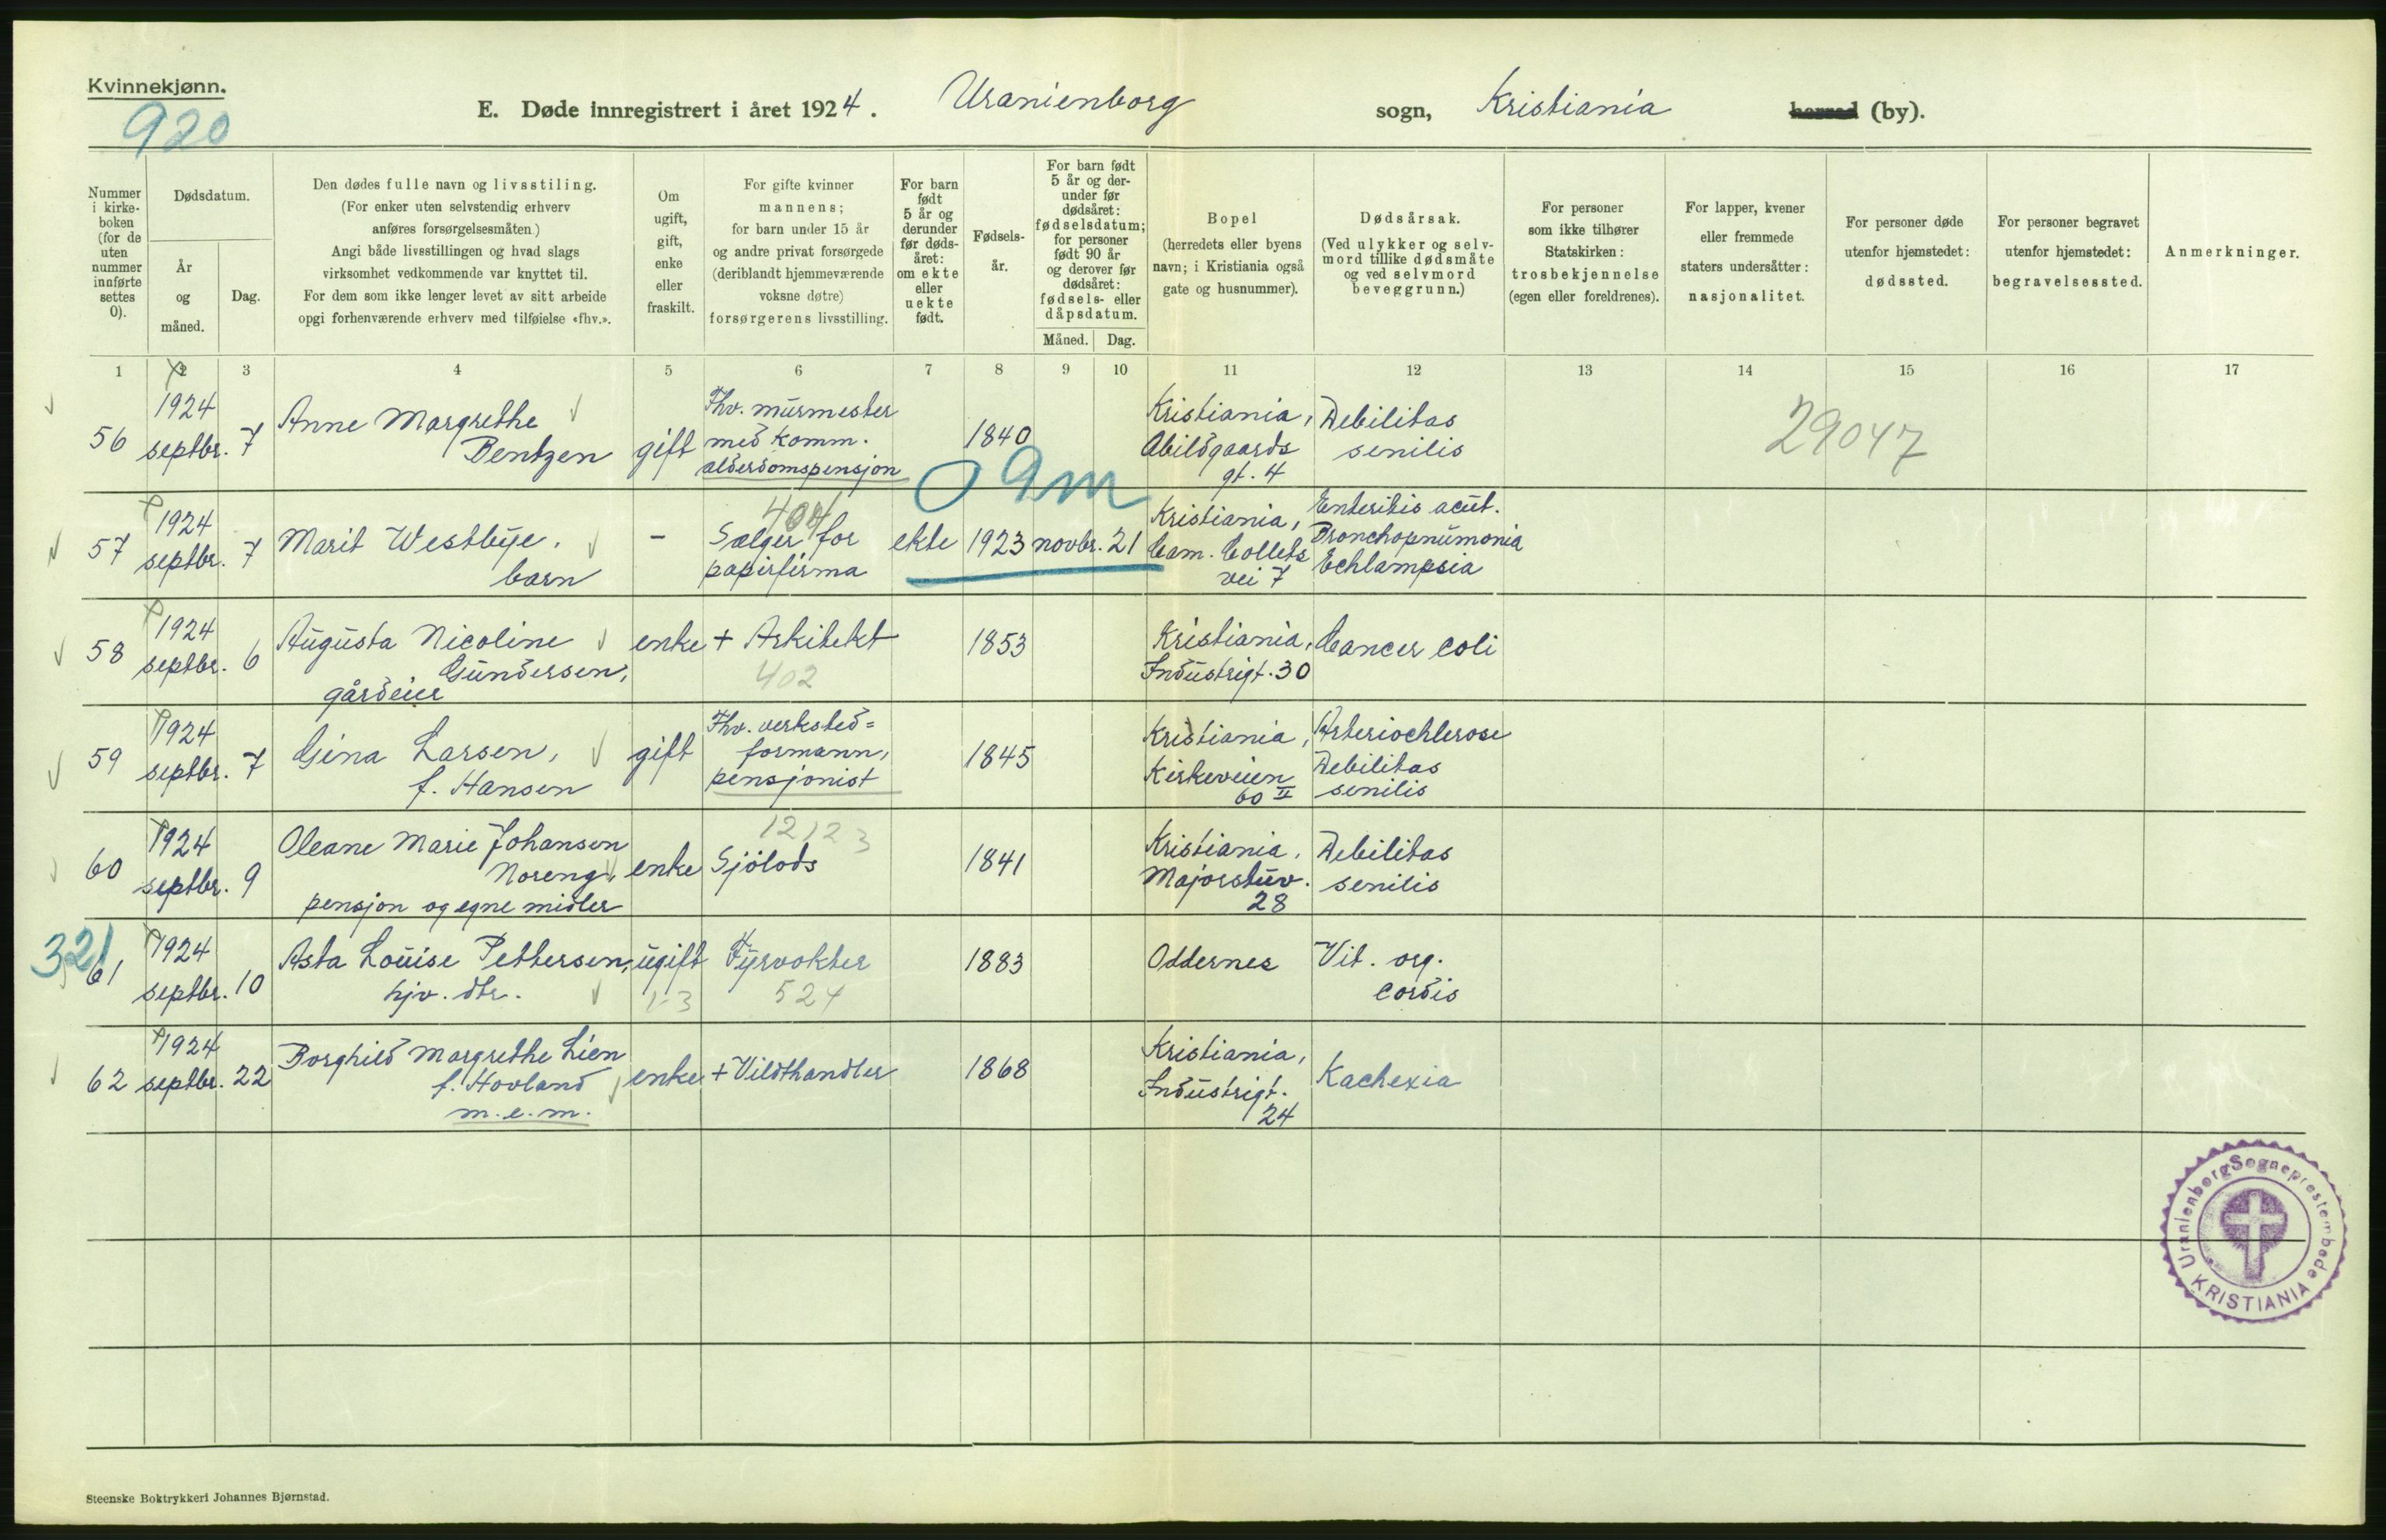 Kvinnekjønn.
920
E. Døde innregistrert i året 1924. Uranienborg sogn, Kristiania herred (by).
Nummer i kirke-boken (for de uten nummer innførte settes 0).
Dødsdatum.
År og måned.
Dag.
Den dødes fulle navn og livsstiling.
(For enker uten selvstendig erhverv
anføres forsørgelsesmåten.)
Angi både livsstillingen og hvad slags
virksomhet vedkommende var knyttet til.
For dem som ikke lenger levet av sitt arbeide
opgi forhenværende erhverv med tilføielse «fhv.».
Om
ugift,
gift,
enke
eller
fraskilt.
For gifte kvinner
mannens;
for barn under 15 år
og andre privat forsørgede
(deriblandt hjemmeværende
voksne døtre)
forsørgerens livsstilling.
For barn
født
5 år og
derunder
før døds-
året:
om ekte
eller
uekte
født.
Fødsels-
år.
For barn født
5 år og der-
under før
dødsåret:
fødselsdatum;
for personer
født 90 år
og derover før
dødsåret:
fødsels- eller
dåpsdatum.
Måned. Dag.
Bopel
(herredets eller byens
navn; i Kristiania også
gate og husnummer).
Dødsårsak.
(Ved ulykker og selv-
mord tillike dødsmåte
og ved selvmord
beveggrunn.)
For personer
som ikke tilhører
Statskirken:
trosbekjennelse
(egen eller foreldrenes).
For lapper, kvener
eller fremmede
staters undersåtter:
nasjonalitet.
For personer døde
utenfor hjemstedet:
dødssted.
For personer begravet
utenfor hjemstedet:
begravelsessted.
Anmerkninger.
1 2 3 4 5 6 7 8 9 10 11 12 13 14 15 16 17
56
1924
septbr. 7
Anne Margrethe
Bentzen
gift
Fhv. murmester
med komm.
alderdomspensjon
1840
Kristiania,
Abildgaards
gt. 4
Debilitas
senilis
29047
09m
57
1924
septbr. 7
Marit Westbye,
barn
-
404
Sælger for
papirfirma
ekte
1923
novbr. 21
Kristiania,
Cam. Collets
vei 7
Enteritis acut.
Bronchopnumonia
Echlampsia
58
1924
septbr. 6
Augusta Nicoline
Gundersen,
gårdeier
enke
+ Arkitekt
402
1853
Kristiania,
Industrigt. 30
Cancer coli
59
1924
septbr. 7
Gina Larsen,
f. Hansen
gift
Fhv. verksted=
formann,
pensjonist
1845
Kristiania,
Kirkeveien
60 II
Arteriochlerose
Debilitas
senilis
60
1924
septbr. 9
Oleane Marie Johansen
Noreng,
pensjon og egne midler
enke
12123
Sjölods
1841
Kristiania,
Majorstuv.
28
Debilitas
senilis
321
61
1924
septbr. 10
Asta Louise Pettersen,
hjv. dtr.
ugift
Fyrvokter
524
1883
Oddernes
Vit. org.
cordis
62
1924
septbr. 22
Borghild Margrethe Lien
f. Hovland
m.e.m.
enke
+ Vildthandler
1868
Kristiania,
Industrigt.
24
Kachexia
Uranienborg Sogneprestembede
KRISTIANIA
Steenske Boktrykkeri Johannes Bjørnstad.